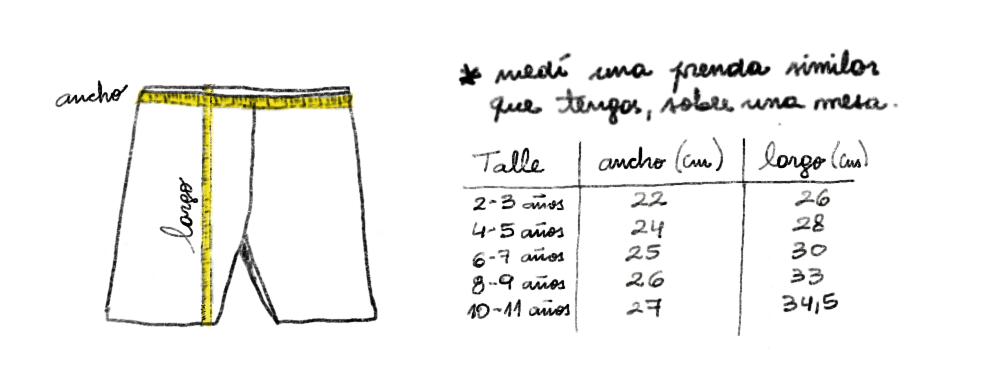 ancho
largo
* medí una prenda similar
que tengas, sobre una mesa.
Talle ancho (cm) largo (cm)
2-3 años 22 26
4-5 años 24 28
6-7 años 25 30
8-9 años 26 33
10-11 años 27 34,5